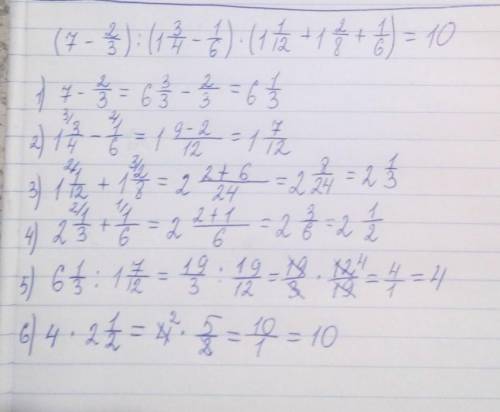 (7 - 2/3) : (1 3/4 - 1/6) · (1 1/12 + 1 2/8 + 1/6) = 10
1) 7 - 2/3 = 6 3/3 - 2/3 = 6 1/3
2) 1 3/ 3/4 - 2/ 1/6 = 1 (9-2)/12 = 1 7/12
3) 1 2/ 1/12 + 1 3/ 2/8 = 2 (2+6)/24 = 2 8/24 = 2 1/3
4) 2 2/ 1/3 + 1/ 1/6 = 2 (2+1)/6 = 2 3/6 = 2 1/2
5) 6 1/3 : 1 7/12 = 19/3 : 19/12 = 19/3 · 12/19 4 = 4/1 = 4
6) 4 · 2 1/2 = 4 2 · 5/2 = 10/1 = 10